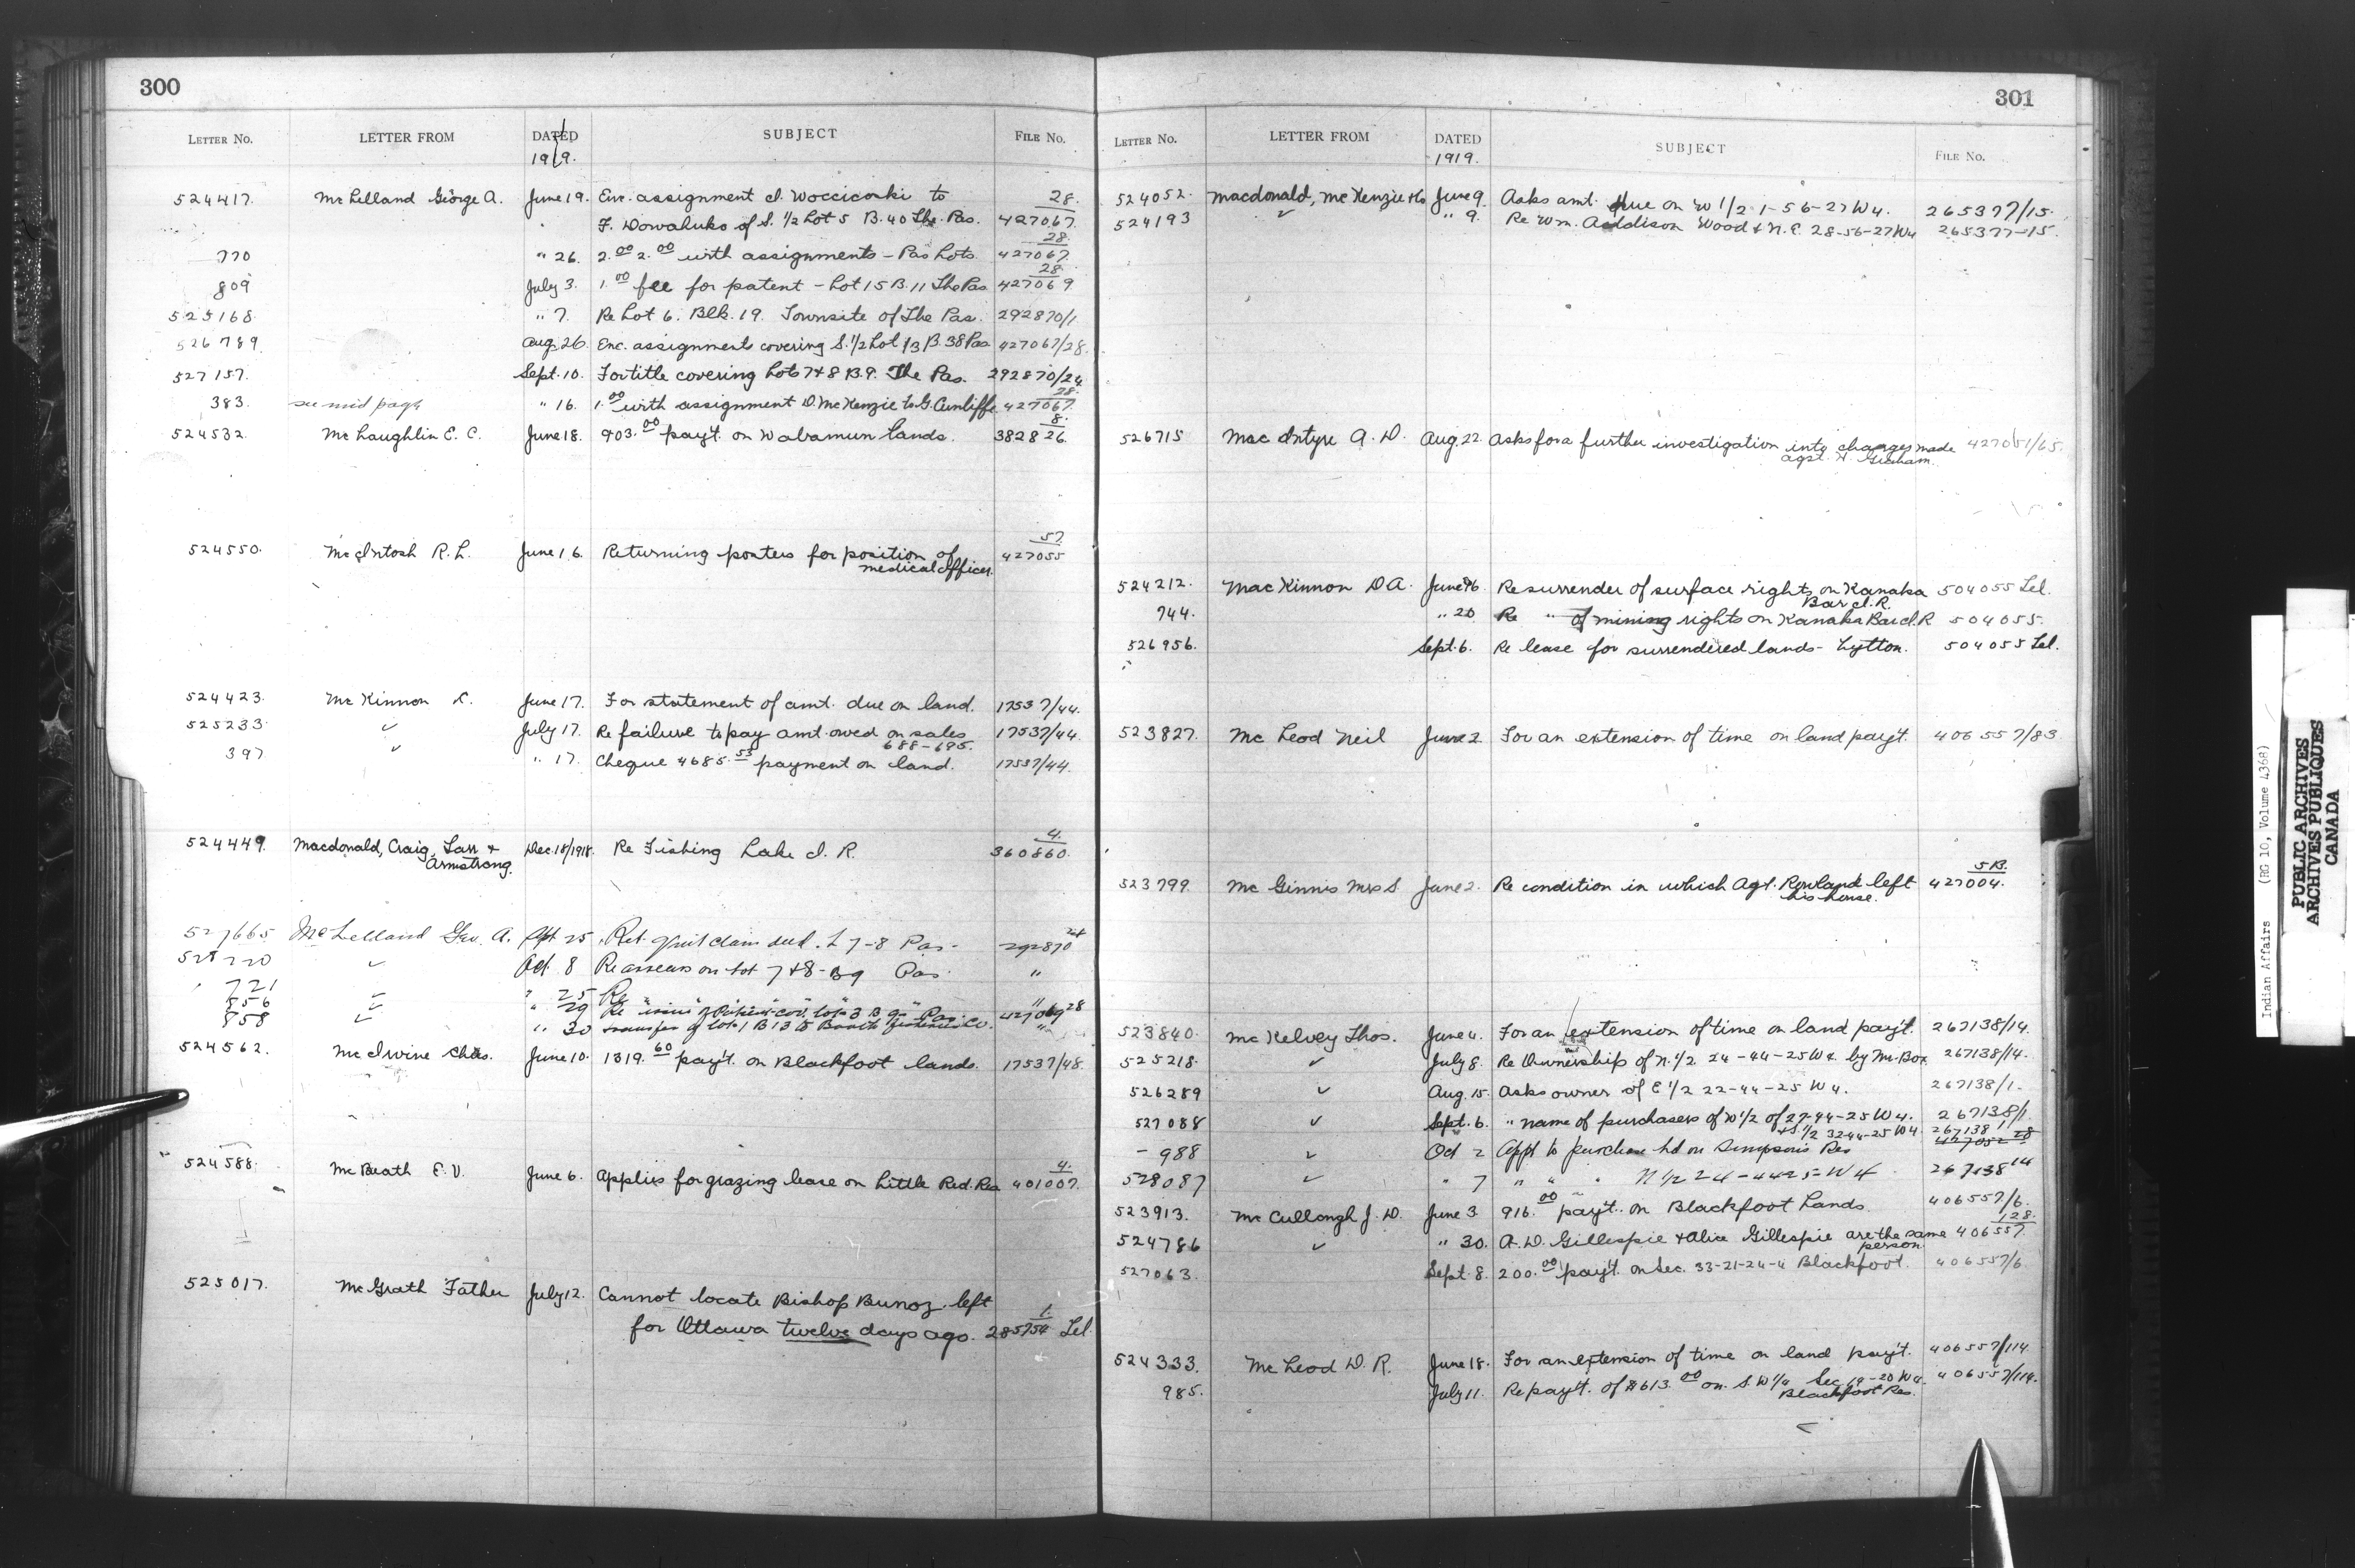 300
LETTER No. LETTER FROM DATED SUBJECT FILE No.
1919.
524417. McLelland George A. June 19. Enc. assignment J. to 28.
F. of S. 1/2 Lot 5 B. 40 The Pas. 427067.
28.
770 " 26. 2.00 2.00 with assignments - Pas Lots. 427067.
28.
809 July 3. 1.00 fee for patent - Lot 15 B. 11 The Pas 427069
525168. " 7. Re Lot 6. Blk. 19. Townsite of The Pas. 292870/1
526789. Aug. 26. Enc. assignments covering S. 1/2 Lot 13 B. 38 Pas 427067/28.
527157. Sept. 10. For title covering Lots 7 & 8 B. 9. The Pas. 292870/24
28.
383. see mid page " 16. 1.00 with assignment D. McKenzie to G. Cunliffe 427067.
8.
524532. McLaughlin E. C. June 18. 903.00 pay't. on Wabamun lands. 382826.
57.
524550. McIntosh R. L. June 16. Returning posters for position of 427055
medical officer.
524423. McKinnon L. June 17. For statement of amt. due on land. 17537/44.
525233. ✓ July 17. Re failure to pay amt. owed on sales 17537/44.
688-695.
397 ✓ " 17. Cheque 4685.53 payment on land. 17537/44.
4.
524449. Macdonald, Craig, Tarr & Dec. 18/1918. Re Fishing Lake I. R. 360860.
Armstrong.
527665 McLelland Geo. A. Spt 25 Ret. quit claim deed. L 7-8 Pas - 292870 24
✓ Oct. 8 Re arrears on Lot 7 & 8 - B 9 Pas. "
721 ✓ " 25 Re " " " " " "
856 ✓ " 29 Re issue of Patent cov. lot 3 B 9 Pas. 427069 28
858 ✓ " 30 transfer of lot 1 B 13 to Booth Fisheries Co. "
524562. McIrwine Chas. June 10. 1319.60 pay't. on Blackfoot lands. 17537/48.
4.
524588. McBeath E. V. June 6. Applies for grazing lease on Little Red. Res 401007.
525017. McGrath Father July 12. Cannot locate Bishop Bunoz. left
1.
for Ottawa twelve days ago. 285754 Tel.
301
LETTER No. LETTER FROM DATED SUBJECT FILE No.
1919.
524052. Macdonald, McKenzie & Co June 9. Asks amt. due on W 1/2 1-56-27 W 4. 265377/15.
524193 ✓ " 9. Re Wm. Addison Wood & N.E. 28-56-27 W4 265377-15.
526715 MacIntyre A. D. Aug. 22. Asks for a further investigation into charges made 427051/65.
agst. Graham.
524212. MacKinnon D A. June 16. Re surrender of surface rights on Kanaka 504055 Tel.
Bar I. R.
744. " 20 Re " of mining rights on Kanaka Bar I. R 504055.
526956. Sept. 6. Re lease for surrendered lands - Lytton. 504055 Tel.
523827. McLeod Neil June 2. For an extension of time on land pay't. 406557/83
5B.
523799. McGinnis Mrs S June 2. Re condition in which Agt. Rowland left 427004.
his house.
523840. McKelvey Thos. June 4. For an extension of time on land pay't. 267138/14.
525218. ✓ July 8. Re Ownership of N. 1/2 24-44-25 W 4. by Mr. Box 267138/14.
526289 ✓ Aug. 15. Asks owner of E 1/2 22-44-25 W 4. 267138/1.
527088 ✓ Sept. 6. " name of purchasers of W 1/2 of 27-44-25 W 4. 267138/1.
& S. 1/2 32-44-25 W 4. 267138 1
988 ✓ Oct 2 Appl to purchase ld on Sampson's Res 427052 28
528087 ✓ " 7 " " " N 1/2 24-44-25-W 4 267138 14
523913. McCullough J. D. June 3. 916.00 pay't. on Blackfoot Lands. 406557/6.
128.
524786 ✓ " 30. A. D. Gillespie & Alice Gillespie are the same 406557
person
527063. Sept. 8. 200.00 pay't. on Sec. 33-21-24-4 Blackfoot. 406557/6.
524333. McLeod D. R. June 18. For an extension of time on land pay't. 406557/114
985. July 11. Re pay't. of $613.00 on S. W 1/4 Sec. 19-20 W4. 406557/114.
Blackfoot Res.
Indian Affairs (RG 10, Volume 4368)
PUBLIC ARCHIVES
ARCHIVES PUBLIQUES
CANADA